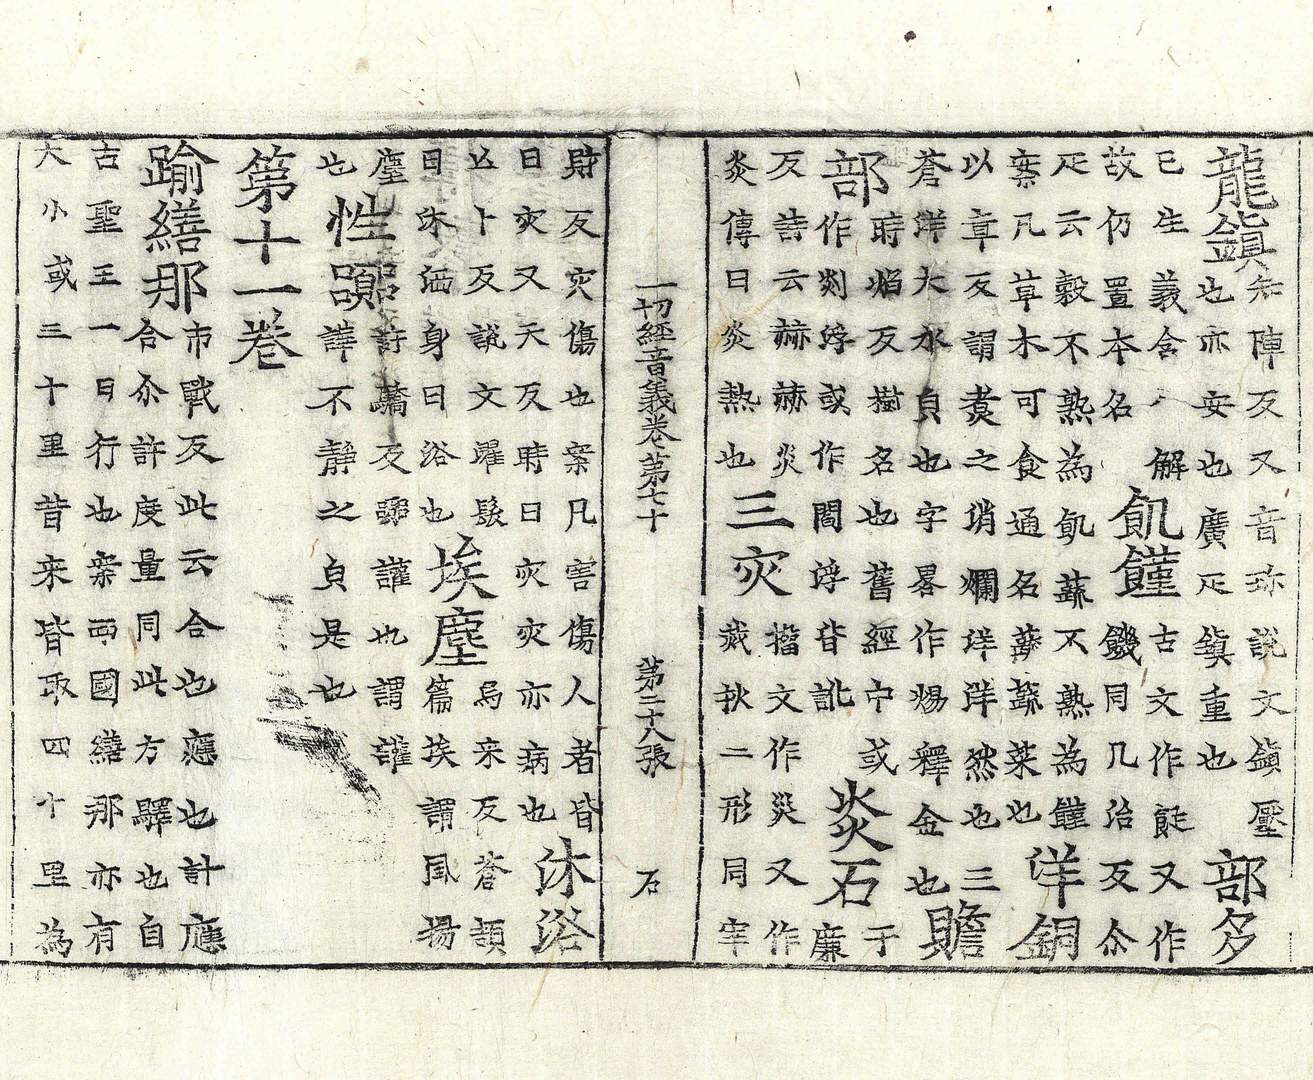 龍鎮知陣反又音珎說文鎮壓也亦安也廣疋鎮重也部多
已生義含解故仍置本名飢饉古文作䬣又作饑同几治反尒
疋云穀不熟為飢蔬不熟為饉案凡草木可食通名蔬蔬菜也洋銅
以章反謂煑之消爛洋洋然也三蒼洋大水皃也字畧作煬釋金也贍
部時焰反樹名也舊經中或作剡浮或作閻浮皆訛炎石于廉
反詩云赫赫炎炎傳曰炎熱也三灾籀文作災又作烖扶二形同宰
一切經音義卷第七十 第二十八張 石
財反灾傷也案凡害傷人者皆曰灾又天反時曰灾灾亦病也沐浴
亾卜反説文濯髮曰沐洒身曰浴也埃塵烏来反蒼頡篇埃謂風揚
塵也性嚻詩驕反嚻讙也謂讙譁不静之皃是也
第十一卷
踰繕那市戰反此云合也應也計應合尒許度量同此方驛也自
古聖王一日行也案西國繕那亦有大小或三十里昔来皆取四十里為